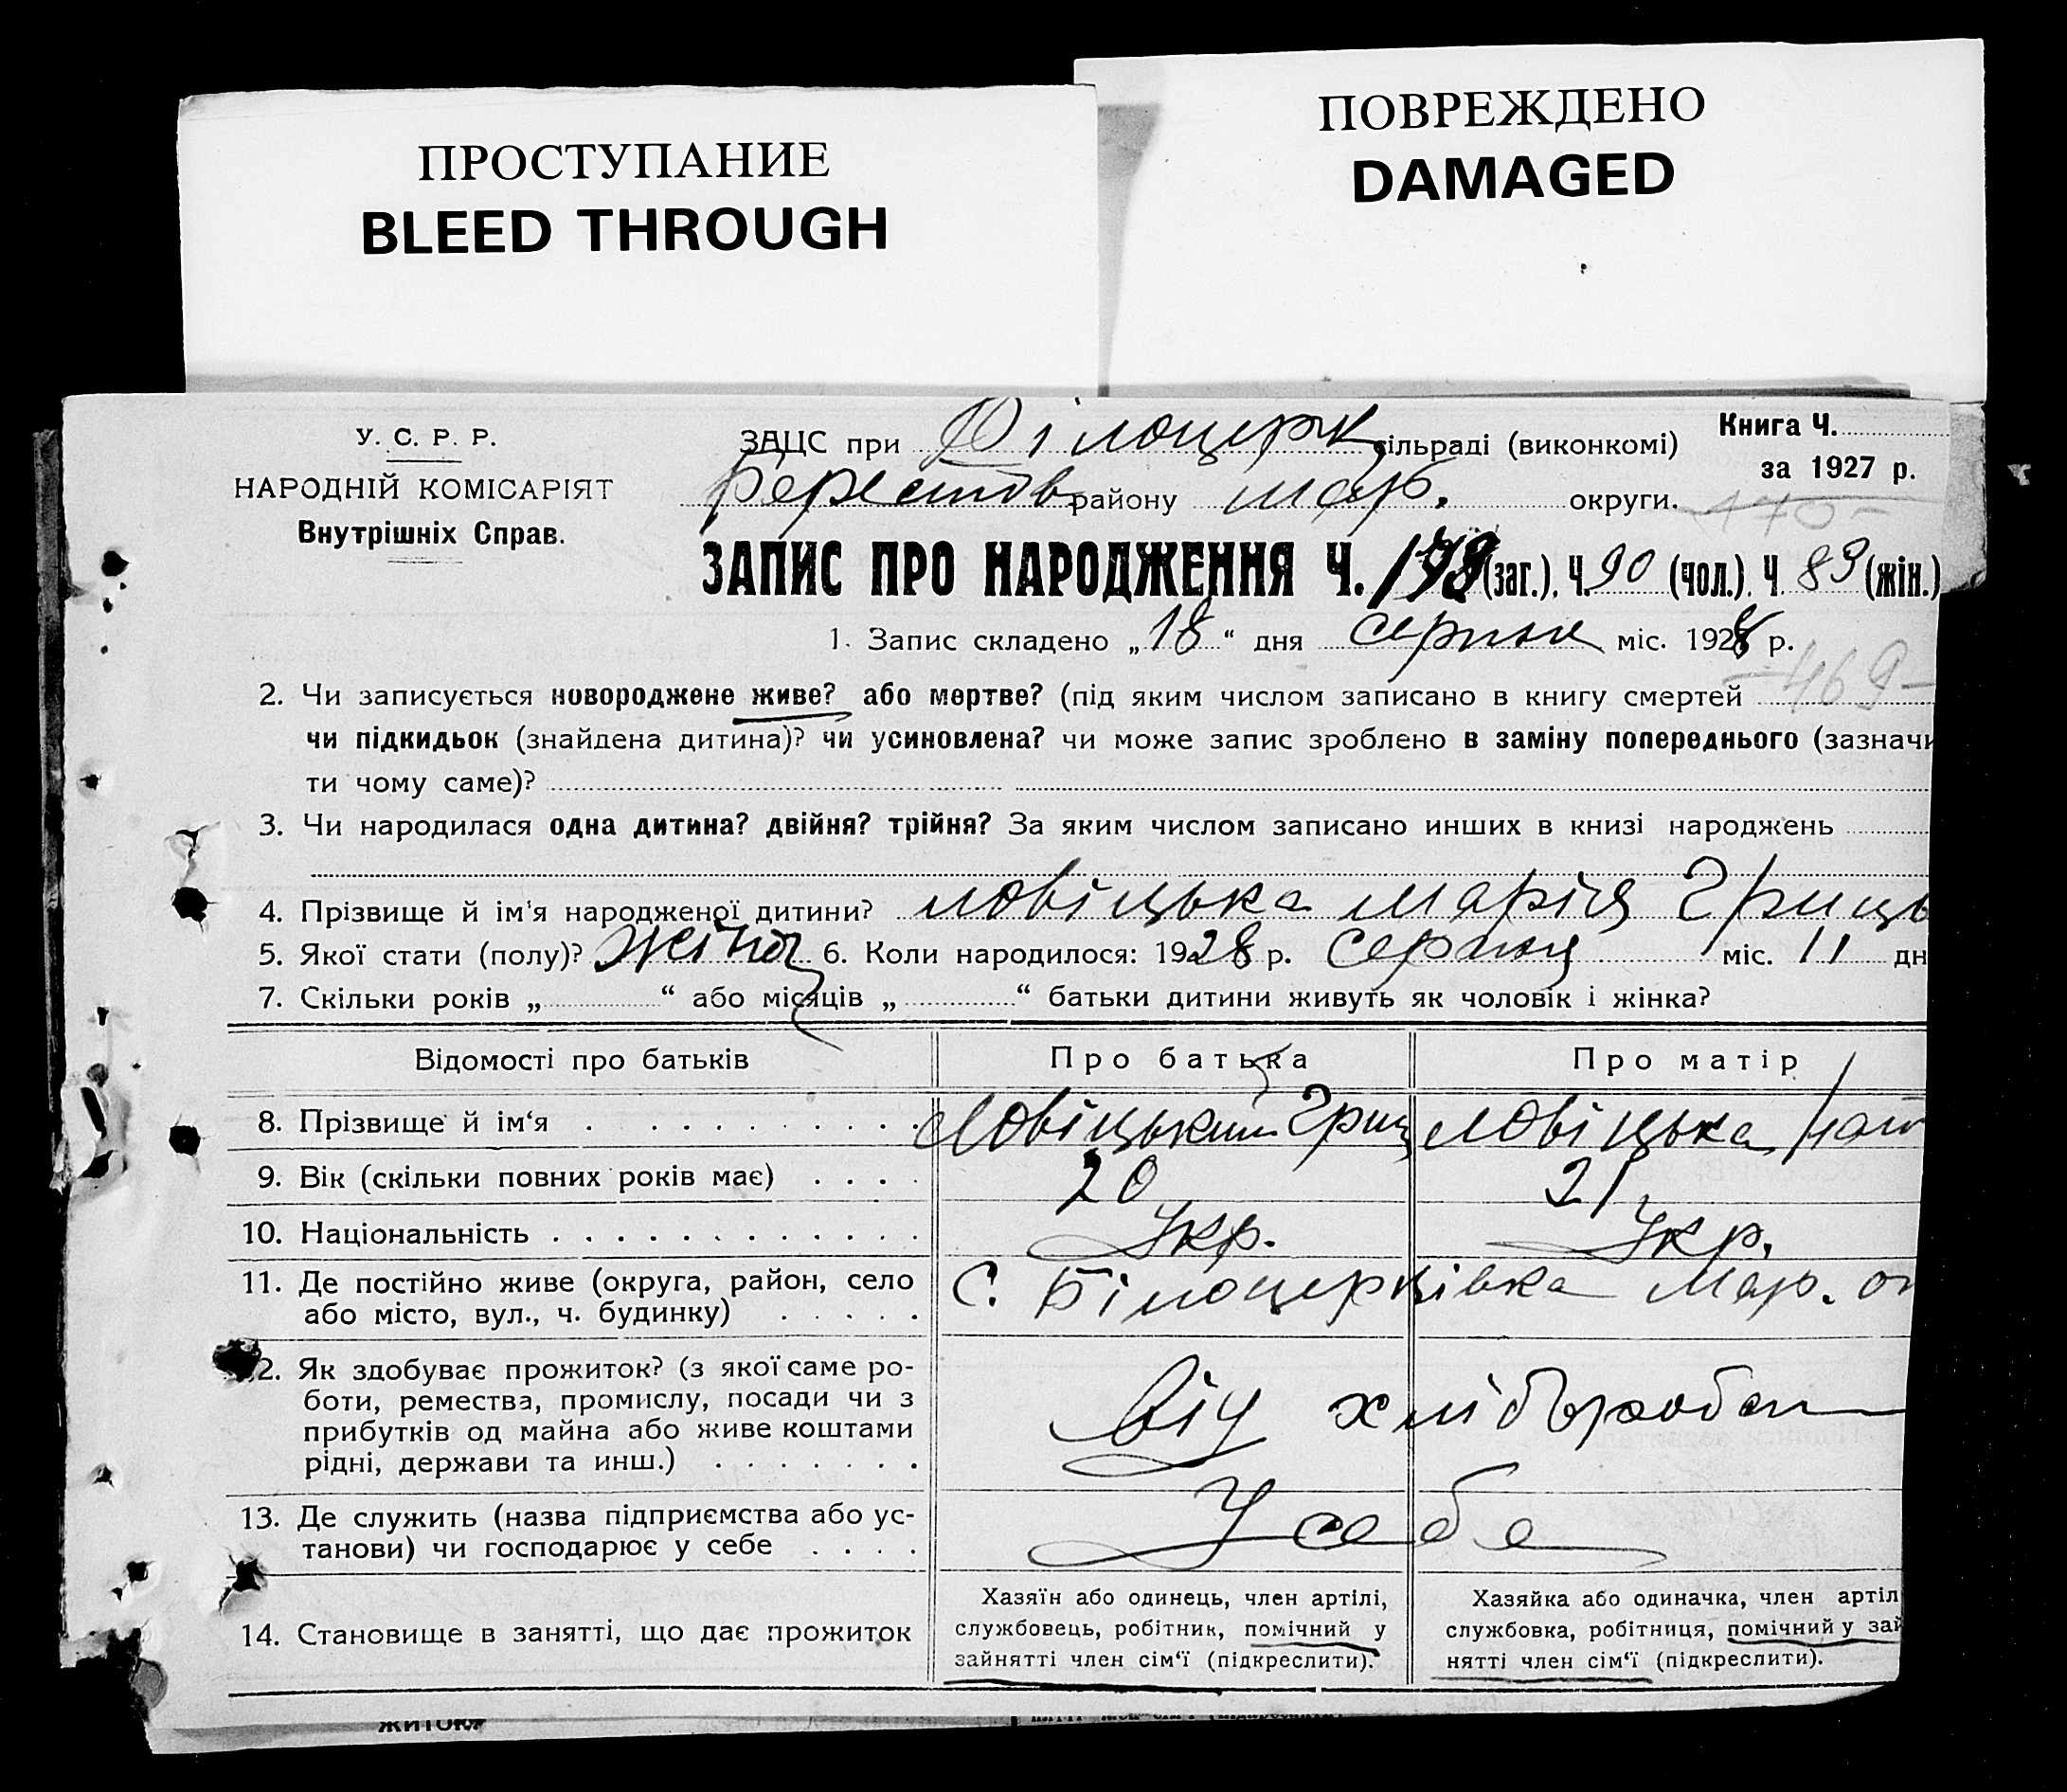 ПРОСТУПАНИЕ
BLEED THROUGH
ПОВРЕЖДЕНО
DAMAGED
У. С. Р. Р.
НАРОДНІЙ КОМІСАРІЯТ
Внутрішніх Справ.
ЗАЦС при Білоцерк сільраді (виконкомі)
Берестов району Мар. округи.
Книга Ч.
за 1927 р.
-170-
ЗАПИС ПРО НАРОДЖЕННЯ Ч. (заг.). Ч. 90 (чол.). Ч. 89 (жін.)
1. Запис складено „18“ дня серпня міс. 1928 р.
2. Чи записується новороджене живе? або мертве? (під яким числом записано в книгу смертей -469-
чи підкидьок (знайдена дитина)? чи усиновлена? чи може запис зроблено в заміну попереднього (зазначи
ти чому саме)?
3. Чи народилася одна дитина? двійня? трійня? За яким числом записано инших в книзі народжень
4. Прізвище й ім'я народженої дитини? Ловіцька Марія Гриць
5. Якої стати (полу)? жіноч 6. Коли народилося: 1928 р. Серпня міс. 11 дн
7. Скільки років „ “ або місяців „ “ батьки дитини живуть як чоловік і жінка?
Відомості про батьків Про батька Про матір
8. Прізвище й ім‘я Ловіцький Гриц Ловіцька Нат
9. Вік (скільки повних років має) 20 21
10. Національність Укр. Укр.
11. Де постійно живе (округа, район, село
або місто, вул., ч. будинку)
С. Білоцерківка Мар. ок
12. Як здобуває прожиток? (з якої саме ро-
боти, ремества, промислу, посади чи з
прибутків од майна або живе коштами
рідні, держави та инш.)
Від хлібороб
13. Де служить (назва підприємства або ус-
танови) чи господарює у себе
У себе
14. Становище в занятті, що дає прожиток
Хазяїн або одинець, член артілі,
службовець, робітник, помічний у
зайнятті член сім‘ї (підкреслити).
Хазяйка або одиначка, член артіл
службовка, робітниця, помічний у зай
нятті член сім‘ї (підкреслити).
житок